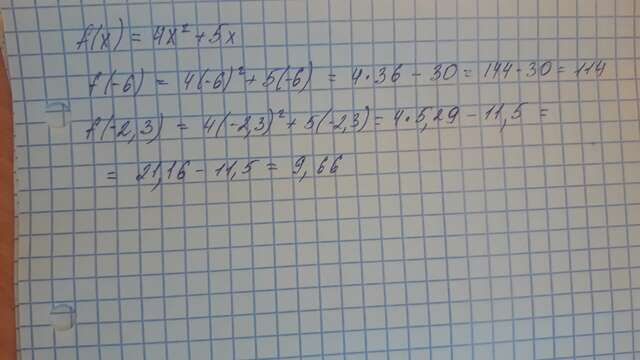 f(x) = 4x² + 5x
f(-6) = 4(-6)² + 5(-6) = 4·36 - 30 = 144 - 30 = 114
f(-2,3) = 4(-2,3)² + 5(-2,3) = 4·5,29 - 11,5 =
= 21,16 - 11,5 = 9,66